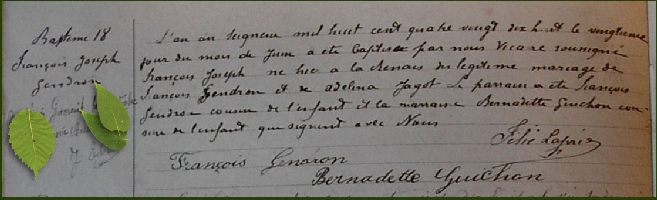 Baptême 18
François Joseph
Gendron
L'an du seigneur mil huit cent quatre vingt dix huit le vingtième
jour du mois de Juin a été baptisé par nous Vicaire soussigné
François Joseph né hier à la Renais du légitime mariage de
François Gendron et de Adelina Jagot Le parrain a été François
Gendron cousin de l'enfant et la marraine Bernadette Guichon cou-
sine de l'enfant qui signent avec Nous
François Gendron
Bernadette Guichon